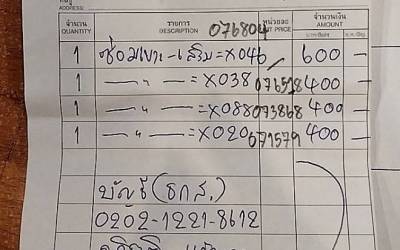 ADDRESS:
จำนวน รายการ 076804 หน่วยละ จำนวนเงิน
QUANTITY DESCRIPTION UNIT PRICE AMOUNT
1 ซ่อมเบาะ-เสริม = X046 600 —
1 — " — = X038 076518 400 —
1 — " — = X088 073868 400 —
1 — " — = X020 071579 400 —
บัญชี (ธกส.)
0202-1221-8612